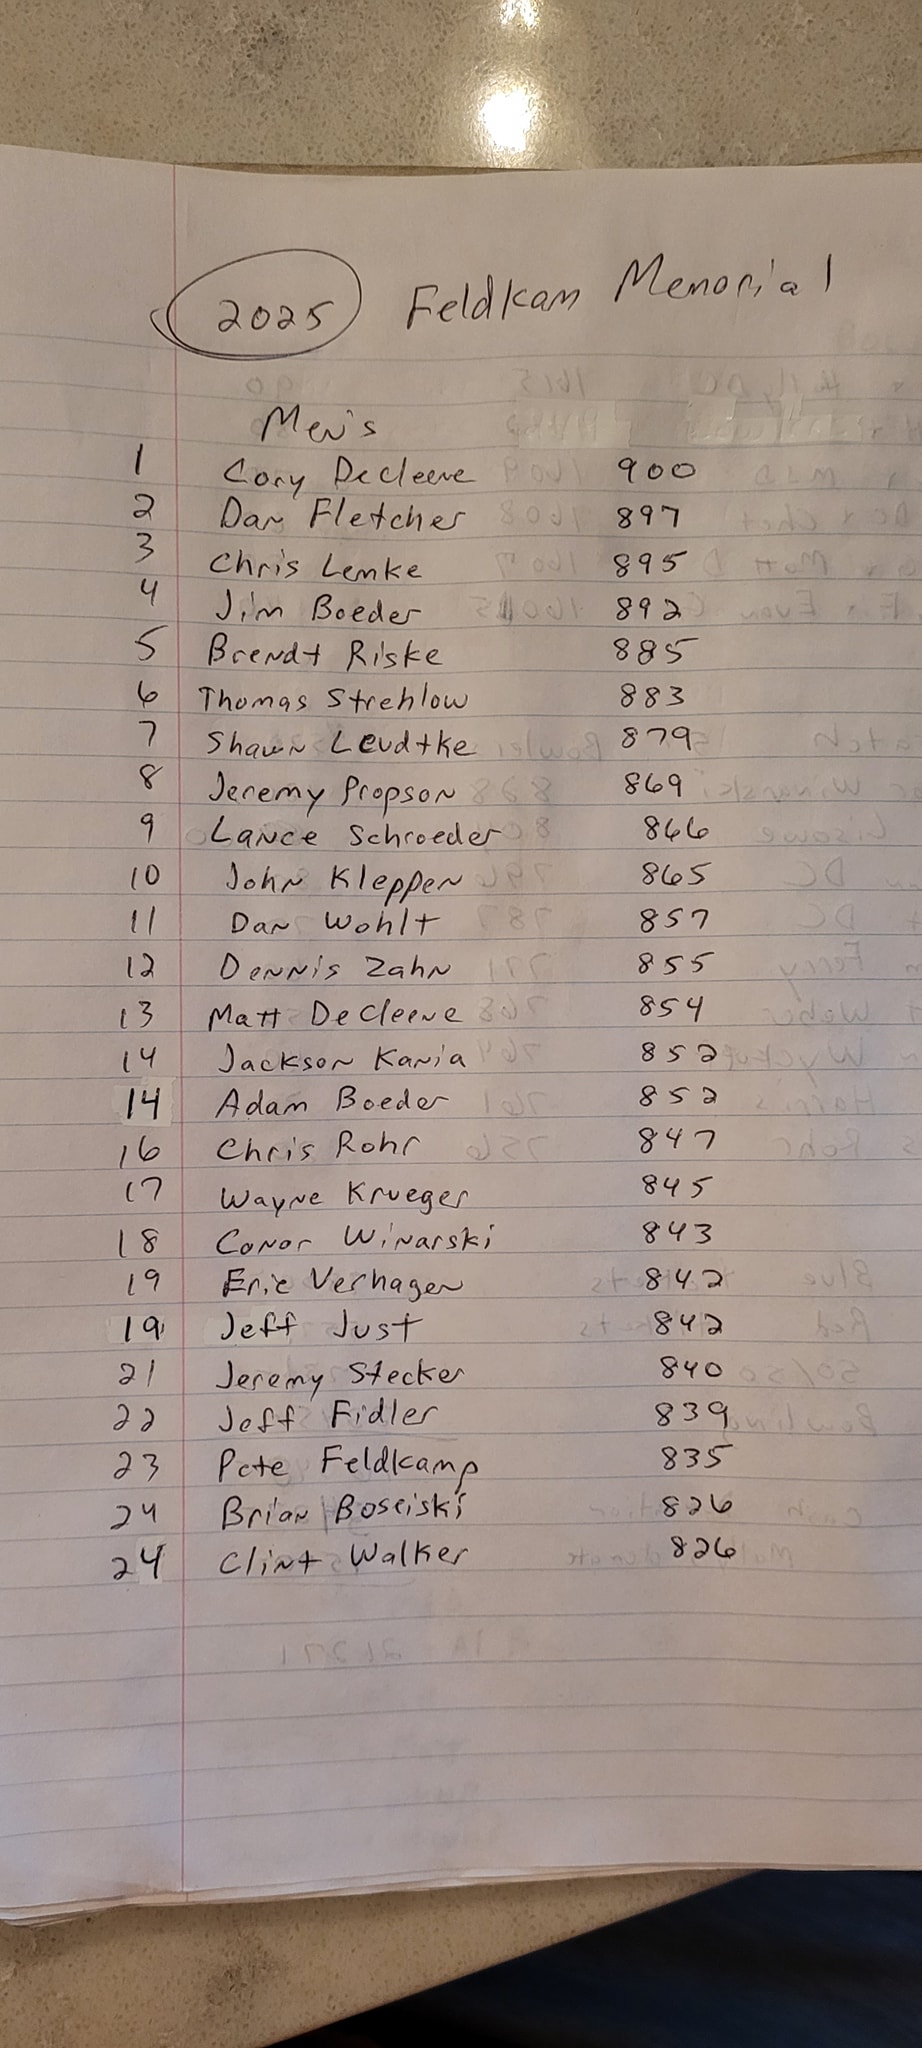 2025 Feldkam Memorial
Men's
1 Cory DeCleene 900
2 Dan Fletcher 897
3 Chris Lemke 895
4 Jim Boeder 892
5 Brendt Riske 885
6 Thomas Strehlow 883
7 Shawn Leudtke 879
8 Jeremy Propson 869
9 Lance Schroeder 866
10 John Kleppen 865
11 Dan Wohlt 857
12 Dennis Zahn 855
13 Matt DeCleene 854
14 Jackson Kania 852
14 Adam Boeder 852
16 Chris Rohr 847
17 Wayne Krueger 845
18 Conor Winarski 843
19 Eric Verhagen 842
19 Jeff Just 842
21 Jeremy Stecker 840
22 Jeff Fidler 839
23 Pete Feldkamp 835
24 Brian Boseiski 826
24 Clint Walker 826